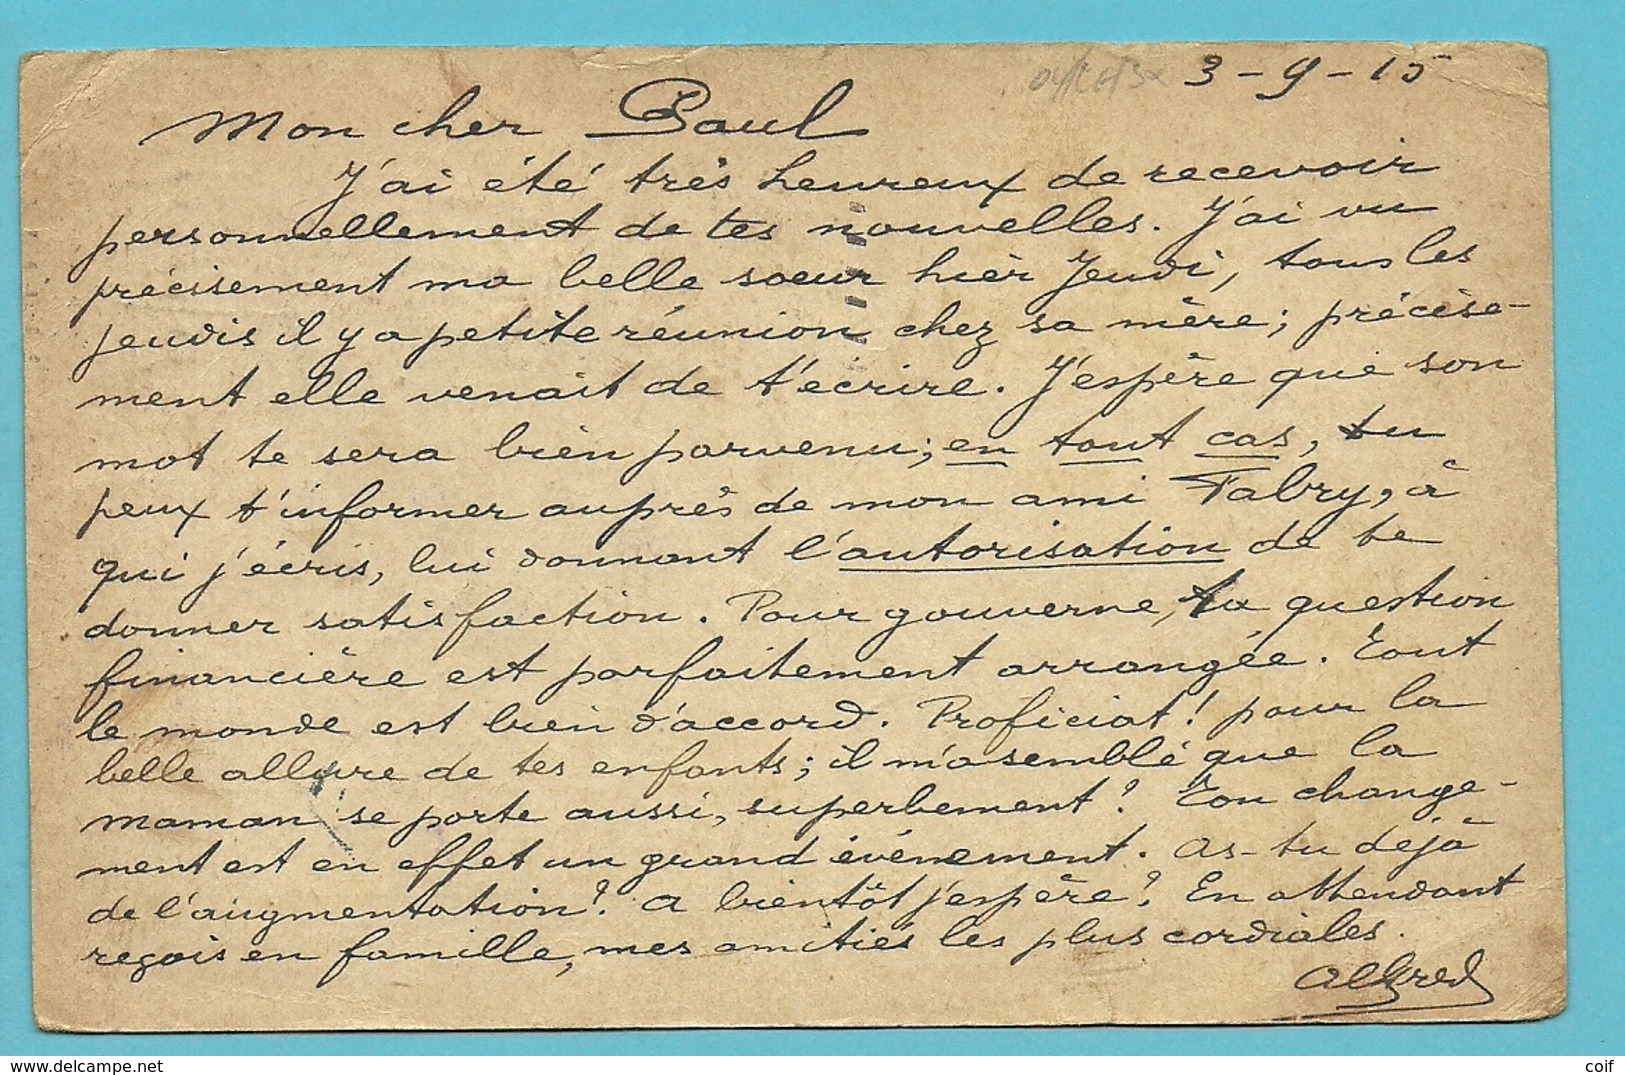 3-9-15
Mon cher Paul
J'ai été très heureux de recevoir
personnellement de tes nouvelles. J'ai vu
précisement ma belle soeur hièr Jeudi, tous les
jeudis il y a petite réunion chez sa mère; précise-
ment elle venait de t'ecrire. J'espère que son
mot te sera bien parvenu; en tout cas, tu
peux t'informer auprès de mon ami Fabry, à
qui j'écris, lui donnant l'autorisation de te
donner satisfaction. Pour gouverne, la question
financière est parfaitement arrangée. Tout
le monde est bien d'accord. Proficiat! pour la
belle allure de tes enfants; il m'a semblé que la
maman se porte aussi, superbement? Ton change-
ment est en effet un grand évènement. As-tu dejà
de l'augmentation? A bientôt j'espère? En attendant
reçois en famille, mes amitiés les plus cordiales.
Alfred
coif